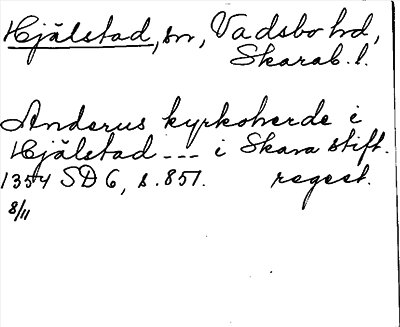 Hjälstad, sn, Vadsbo hd,
Skarab. l.
Anderus kyrkoherde i
Hjälstad --- i Skara stift.
1354 SD 6, s. 851. regest.
8/11